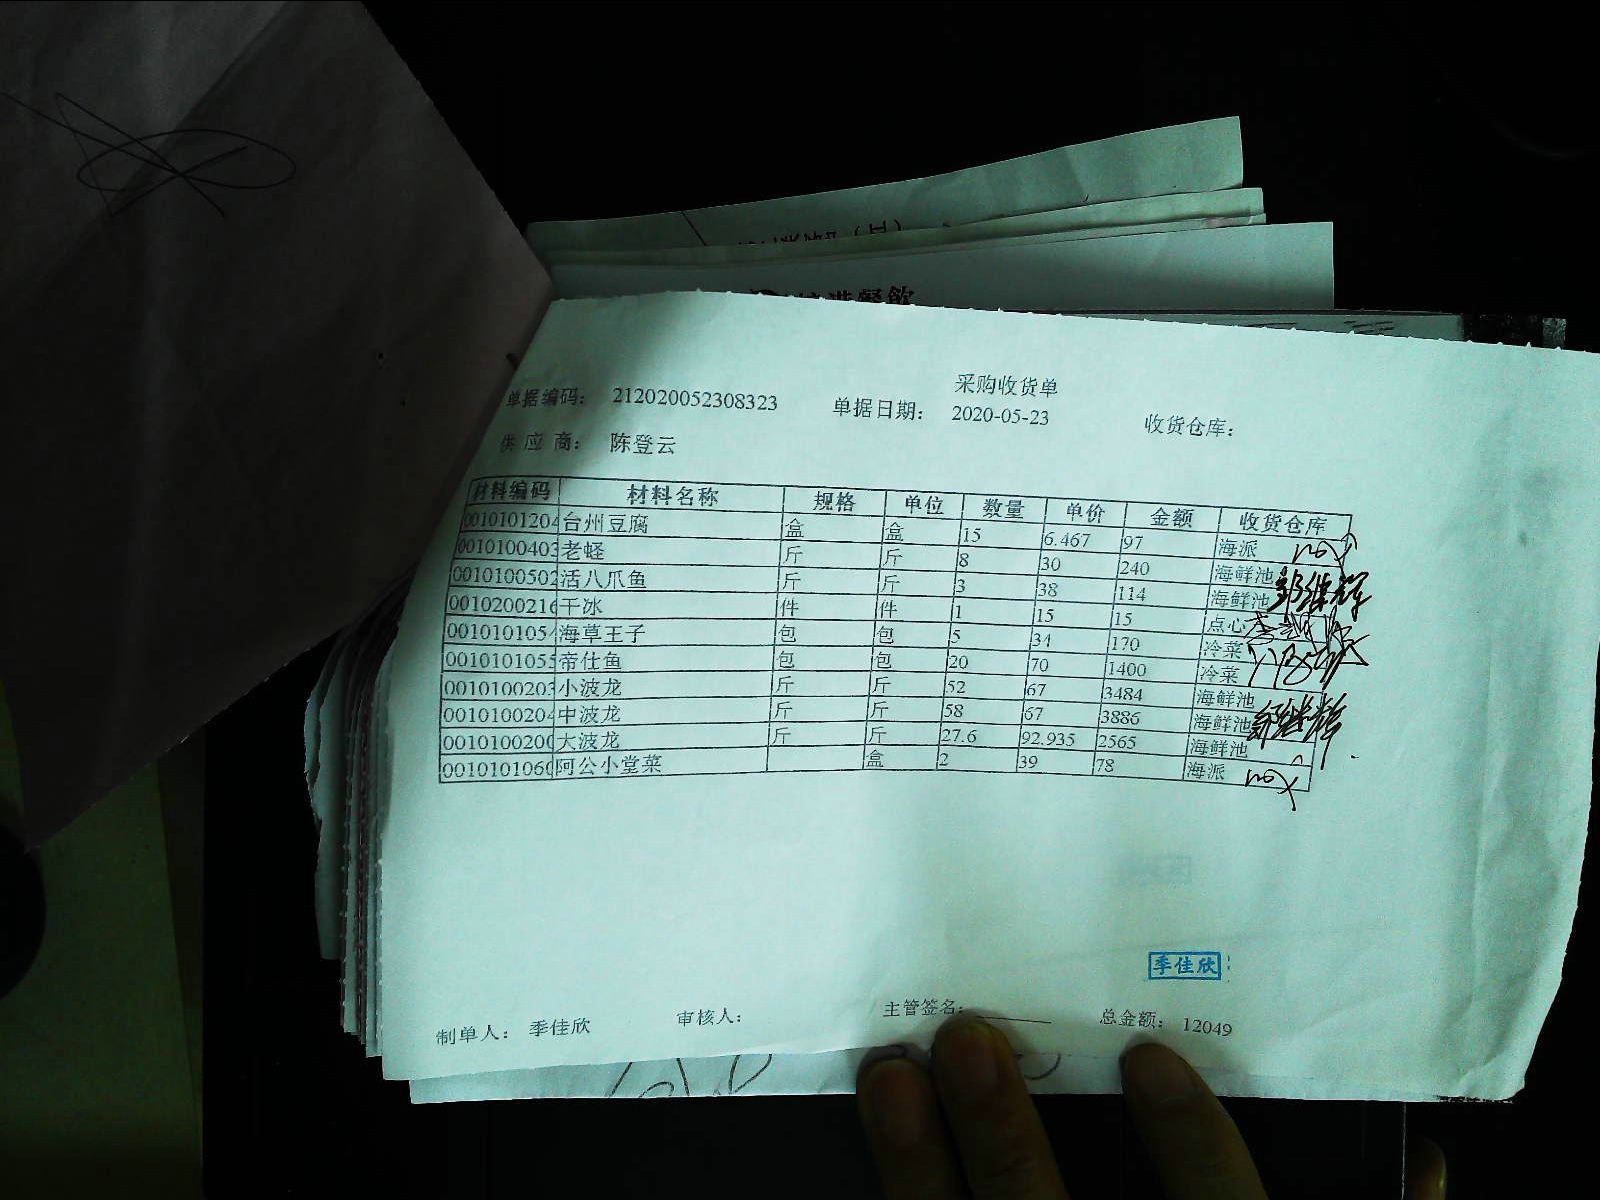 采购收货单
单据编码: 212020052308323 单据日期: 2020-05-23 收货仓库:
供应商: 陈登云
材料编码 材料名称 规格 单位 数量 单价 金额 收货仓库
0010101204 台州豆腐 盒 盒 15 6.467 97 海派
0010100403 老蛏 斤 斤 8 30 240 海鲜池
0010100502 活八爪鱼 斤 斤 3 38 114 海鲜池
0010200216 干冰 件 件 1 15 15 点心
001010105 海草王子 包 包 5 34 170 冷菜
0010101055 帝仕鱼 包 包 20 70 1400 冷菜
0010100203 小波龙 斤 斤 52 67 3484 海鲜池
0010100204 中波龙 斤 斤 58 67 3886 海鲜池
0010100200 大波龙 斤 斤 27.6 92.935 2565 海鲜池
0010101060 阿公小堂菜 盒 2 39 78 海派
季佳欣
制单人: 季佳欣 审核人: 主管签名: 总金额: 12049